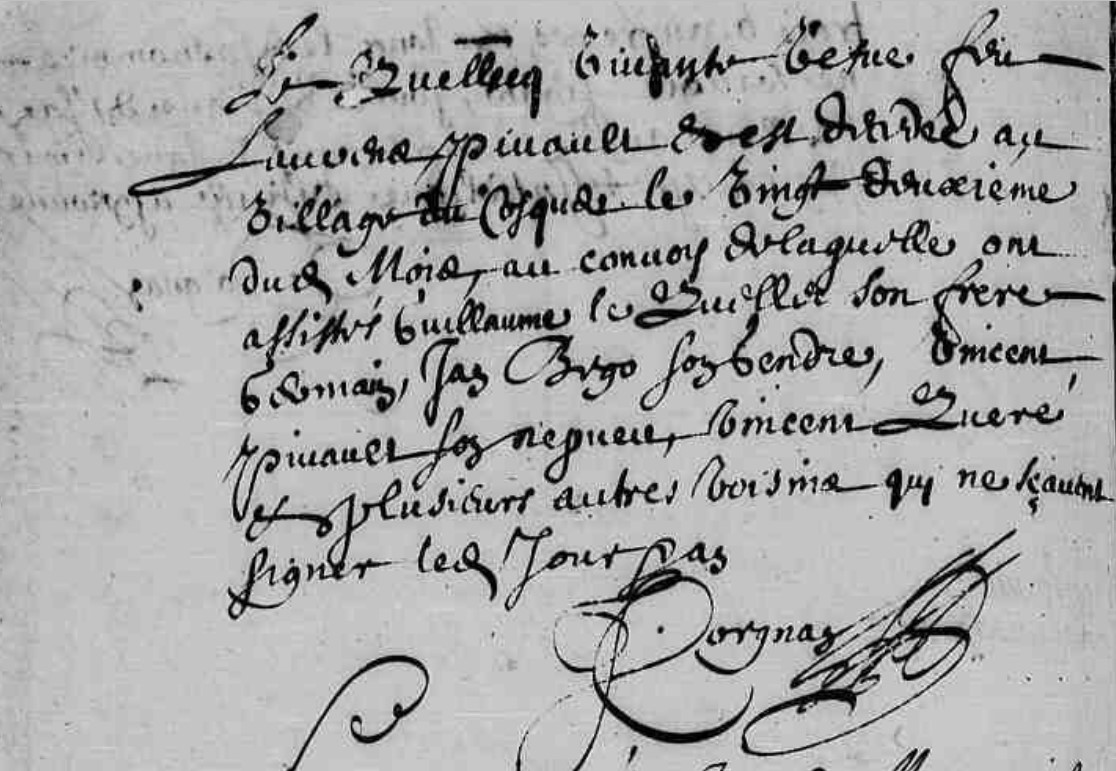 Le Quellecq vivante vefue feu
Laurens Pivault et est decedee au
village du Cosquer le vingt deuxieme
dud Mois, au convoy de laquelle ont
assistés Guillaume le Quellec son frere
Germain, Jan Bego son gendre, Vincent
Pivault son nepueu, Vincent Queré
et plusieurs autres voisins qui ne sçavent
signer led Jour & an